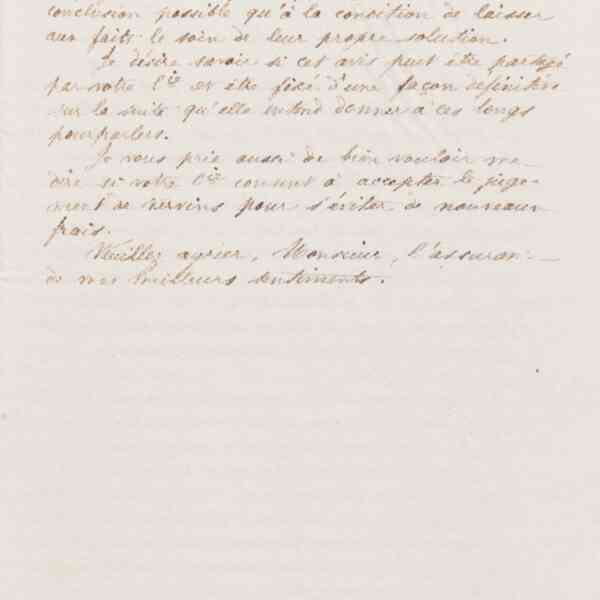 conclusion possible qu'à la condition de laisser
aux faits le soin de leur propre solution.
Je désire savoir si cet avis peut être partagé
par votre Cie et être fixé d'une façon définitive
sur la suite qu'elle entend donner à ces longs
pourparlers.
Je vous prie aussi de bien vouloir me
dire si votre Cie consent à accepter le juge-
ment de Vervins pour s'éviter de nouveaux
frais.
Veuillez agréer, Monsieur, l'assuran-
de mes meilleurs sentiments.